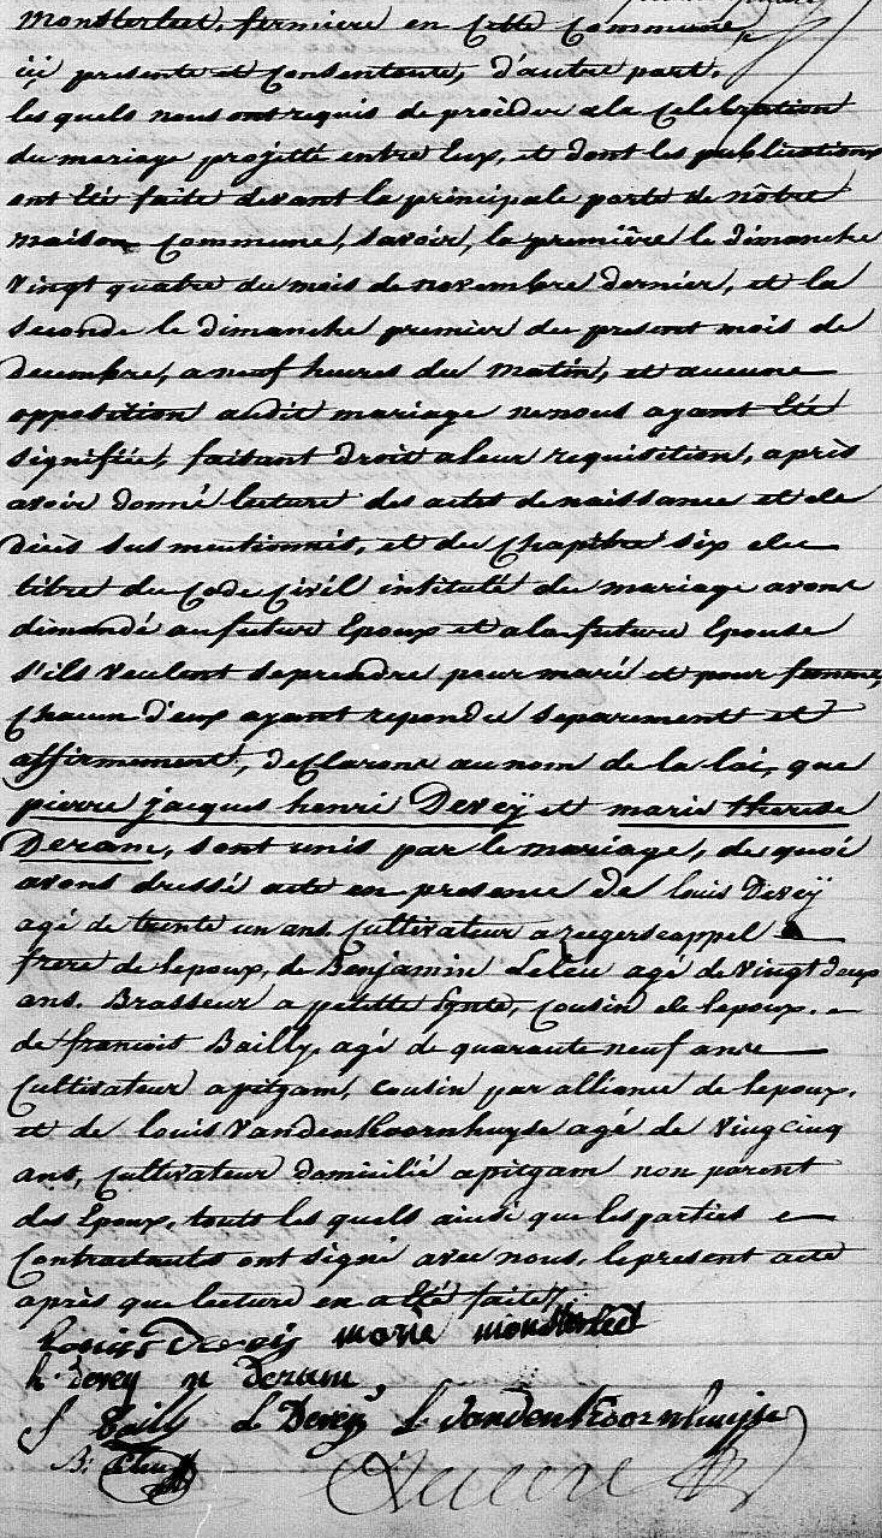 monsterleet, fermiere en Cette Commune,
içi presente et Consentante, d'autre part.
les quels nous ont requis de proceder ala Celebration
du mariage projetté entre Eux, et dont les publications
ont Eté faite devant la principale porte de nôtre
maison Commune, Savoir, la premiêre le dimanche
vingt quatre du mois de novembre dernier, et la
Seconde le dimanche premier du present mois de
decembre, a neuf heures du matin, et aucune
opposition audit mariage ne nous ayant Eté
signifiée, faisant droit a leur requisition, après
avoir donné lecture des actes de naissance et de
décés sus mentionnés, et du Chapitre six du
titre du Code Civil intitulé du mariage avons
demandé au futur Epoux et ala future Epouse
s'ils veulent se prendre pour mari et pour femme,
Chacun d'eux ayant repondu separement et
affirmement, declarons au nom de la loi, que
pierre jacques henri Devey et marie therese
Deram, sont unis par le mariage, de quoi
avons dressé acte en presence de louis Devey
agé de trente un ans Cultivateur a zegerscappel
frere de lepoux, de Benjamin Leleu agé de vingt deux
ans. Brasseur a petitte Synte, Cousin de lepoux.
de francois Bailly, agé de quarante neuf ans
Cultivateur apitgam, cousin par alliance de lepoux.
et de louis Vandenkoornhuyse agé de ving cinq
ans, Cultivateur domicilié apitgam non parent
des Epoux, touts les quels ainsi que les parties
Contractants ont signé avec nous, le present acte
après que lecture en a Eté faite
marie monsterleet
h. devey m Deram,
f Bailly L Devey L Vandenkoornhuyse
B. Leleu